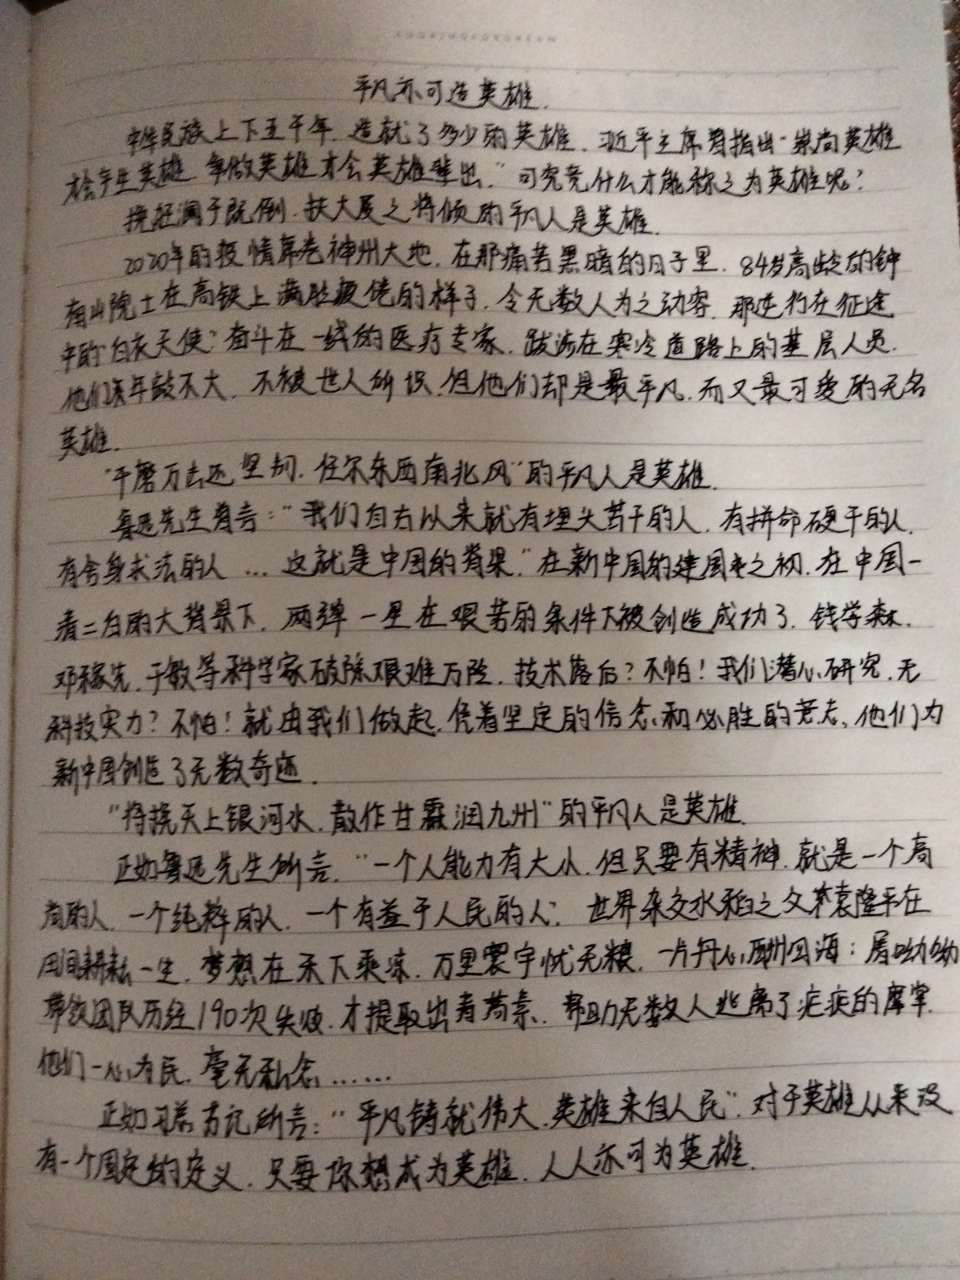 平凡亦可造英雄.
中华民族上下五千年,造就了多少的英雄,习近平主席曾指出“崇尚英雄
才会产生英雄,争做英雄才会英雄辈出。”可究竟什么才能称之为英雄呢?
挽狂澜于既倒,扶大厦之将倾的平凡人是英雄.
2020年的疫情席卷神州大地,在那痛苦黑暗的日子里,84岁高龄的钟
南山院士在高铁上满脸疲倦的样子,令无数人为之动容,那逆行在征途
中的“白衣天使”奋斗在一线的医疗专家,跋涉在寒冷道路上的基层人员,
他们年龄不大,不被世人所识,但他们却是最平凡,而又最可爱的无名
英雄.
“千磨万击还坚韧,任尔东西南北风”的平凡人是英雄.
鲁迅先生曾言:“我们自古以来就有埋头苦干的人,有拼命硬干的人,
有舍身求法的人…这就是中国的脊梁.”在新中国的建国之初,在中国一
着二白的大背景下,两弹一星在艰苦的条件下被创造成功了,钱学森,
邓稼先,于敏等科学家破除艰难万险,技术落后?不怕!我们潜心研究,无
科技实力?不怕!就由我们做起,凭着坚定的信念和必胜的意志,他们为
新中国创造了无数奇迹.
“将挽天上银河水,散作甘霖润九州”的平凡人是英雄.
正如鲁迅先生所言,“一个人能力有大小,但只要有精神,就是一个高
尚的人,一个纯粹的人,一个有益于人民的人”,世界杂交水稻之父袁隆平在
田间耕耘一生,梦想在禾下乘凉,万里寰宇忧无粮,一片丹心酬四海:屠呦呦
带领团队历经190次失败,才提取出青蒿素,帮助无数人逃离了疟疾的魔掌,
他们一心为民,毫无私念……
正如习总书记所言:“平凡铸就伟大,英雄来自人民”.对于英雄从来没
有一个固定的定义,只要你想成为英雄,人人亦可为英雄.